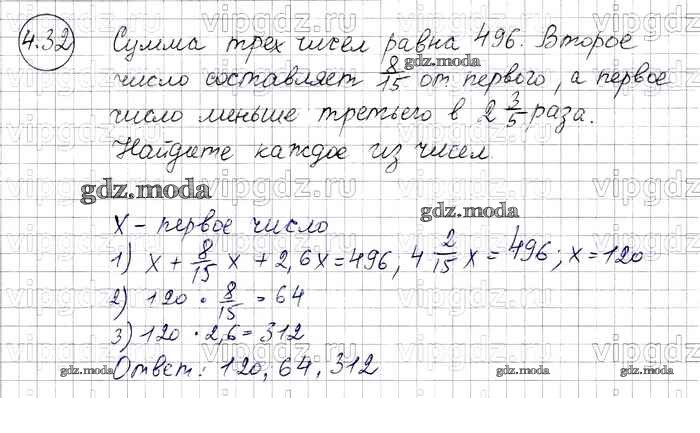 4.32 Сумма трех чисел равна 496. Второе
число составляет 8/15 от первого, а первое
число меньше третьего в 2 3/5 раза.
Найдите каждое из чисел.
x - первое число
1) x + 8/15 x + 2,6x = 496, 4 2/15 x = 496; x = 120
2) 120 · 8/15 = 64
3) 120 · 2,6 = 312
Ответ: 120, 64, 312
gdz.moda
gdz.moda
gdz.moda
gdz.moda
gdz.moda
gdz.moda
vipgdz.ru